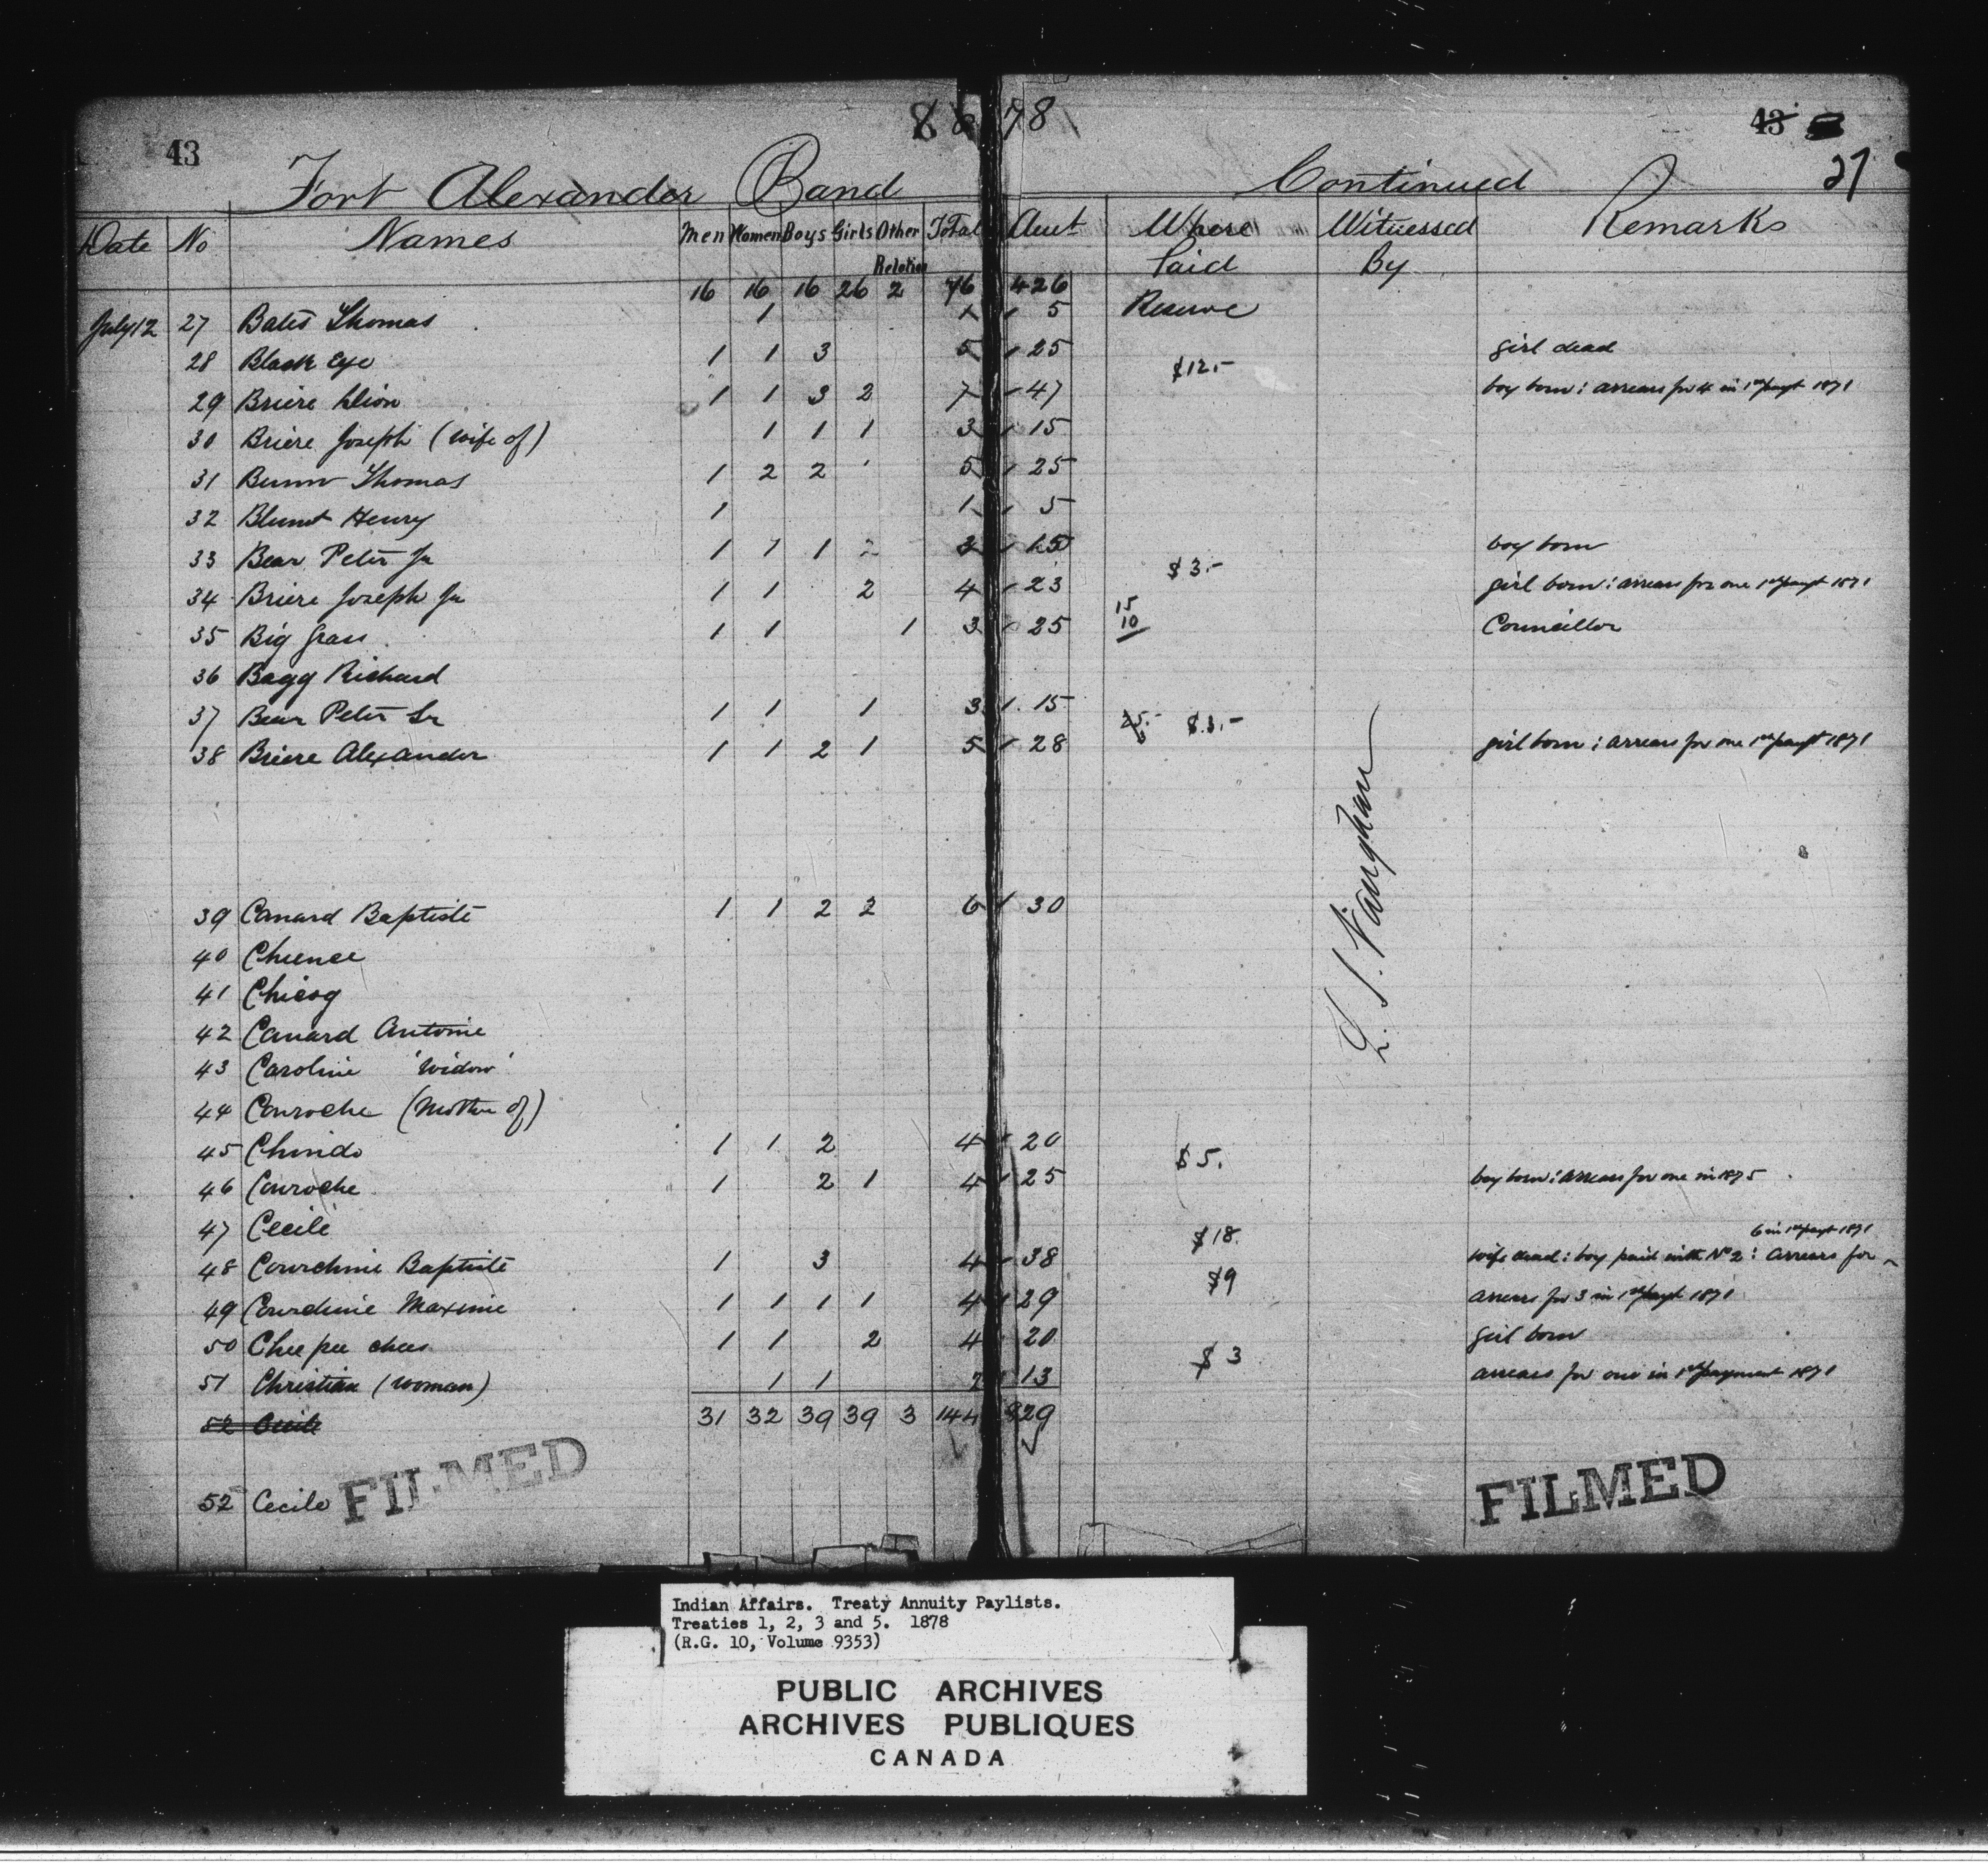 1878
43 43
27
Fort Alexander Band Continued
Date No Names Men Women Boys Girls Other Relation Total Amt Where Paid Witnessed By Remarks
16 16 16 26 2 76 426
July 12 27 Bates Thomas 1 1 5 Reserve
28 Black Eye 1 1 3 5 25 girl dead
$12.-
29 Briere 1 1 3 2 7 47 boy born : arrears for 4 in 1st payt 1871
30 Briere Joseph (wife of) 1 1 1 3 15
31 Bunn Thomas 1 2 2 5 25
32 Blunt Henry 1 1 5
33 Bear Peter Jr 1 1 1 3 15 boy born
$3.-
34 Briere Joseph Jr 1 1 2 4 23 girl born : arrears for one 1st payt 1871
35 Big Grass 1 1 1 3 25 15 10 Councillor
36 Bagg Richard
37 Bear Peter Sr 1 1 1 3 15
$3.-
38 Briere Alexander 1 1 2 1 5 28 girl born ; arrears for one 1st payt 1871
39 Canard Baptiste 1 1 2 2 6 30
40 Chuence
41 Chicog
42 Canard Antoine
43 Caroline 'Widow'
44 Conroche (Mother of)
45 Chindo 1 1 2 4 20
$5.
46 Conroche 1 2 1 4 25 boy born : arrears for one in 1875
47 Cecile
$18. 6 in 1st payt 1871
48 Courchine Baptiste 1 3 4 38 wife dead : boy paid with No 2 : arrears for
$9
49 Courchine Maxime 1 1 1 1 4 29 arrears for 3 in 1st payt 1871
50 Chee pee chees 1 1 2 4 20 girl born
$3
51 Christian (woman) 1 1 2 13 arrears for one in 1st payment 1871
52 Cecile 31 32 39 39 3 144 829
52 Cecile
L. S. Vaughan
FILMED
FILMED
Indian Affairs. Treaty Annuity Paylists.
Treaties 1, 2, 3 and 5. 1878
(R.G. 10, Volume 9353)
PUBLIC ARCHIVES
ARCHIVES PUBLIQUES
CANADA